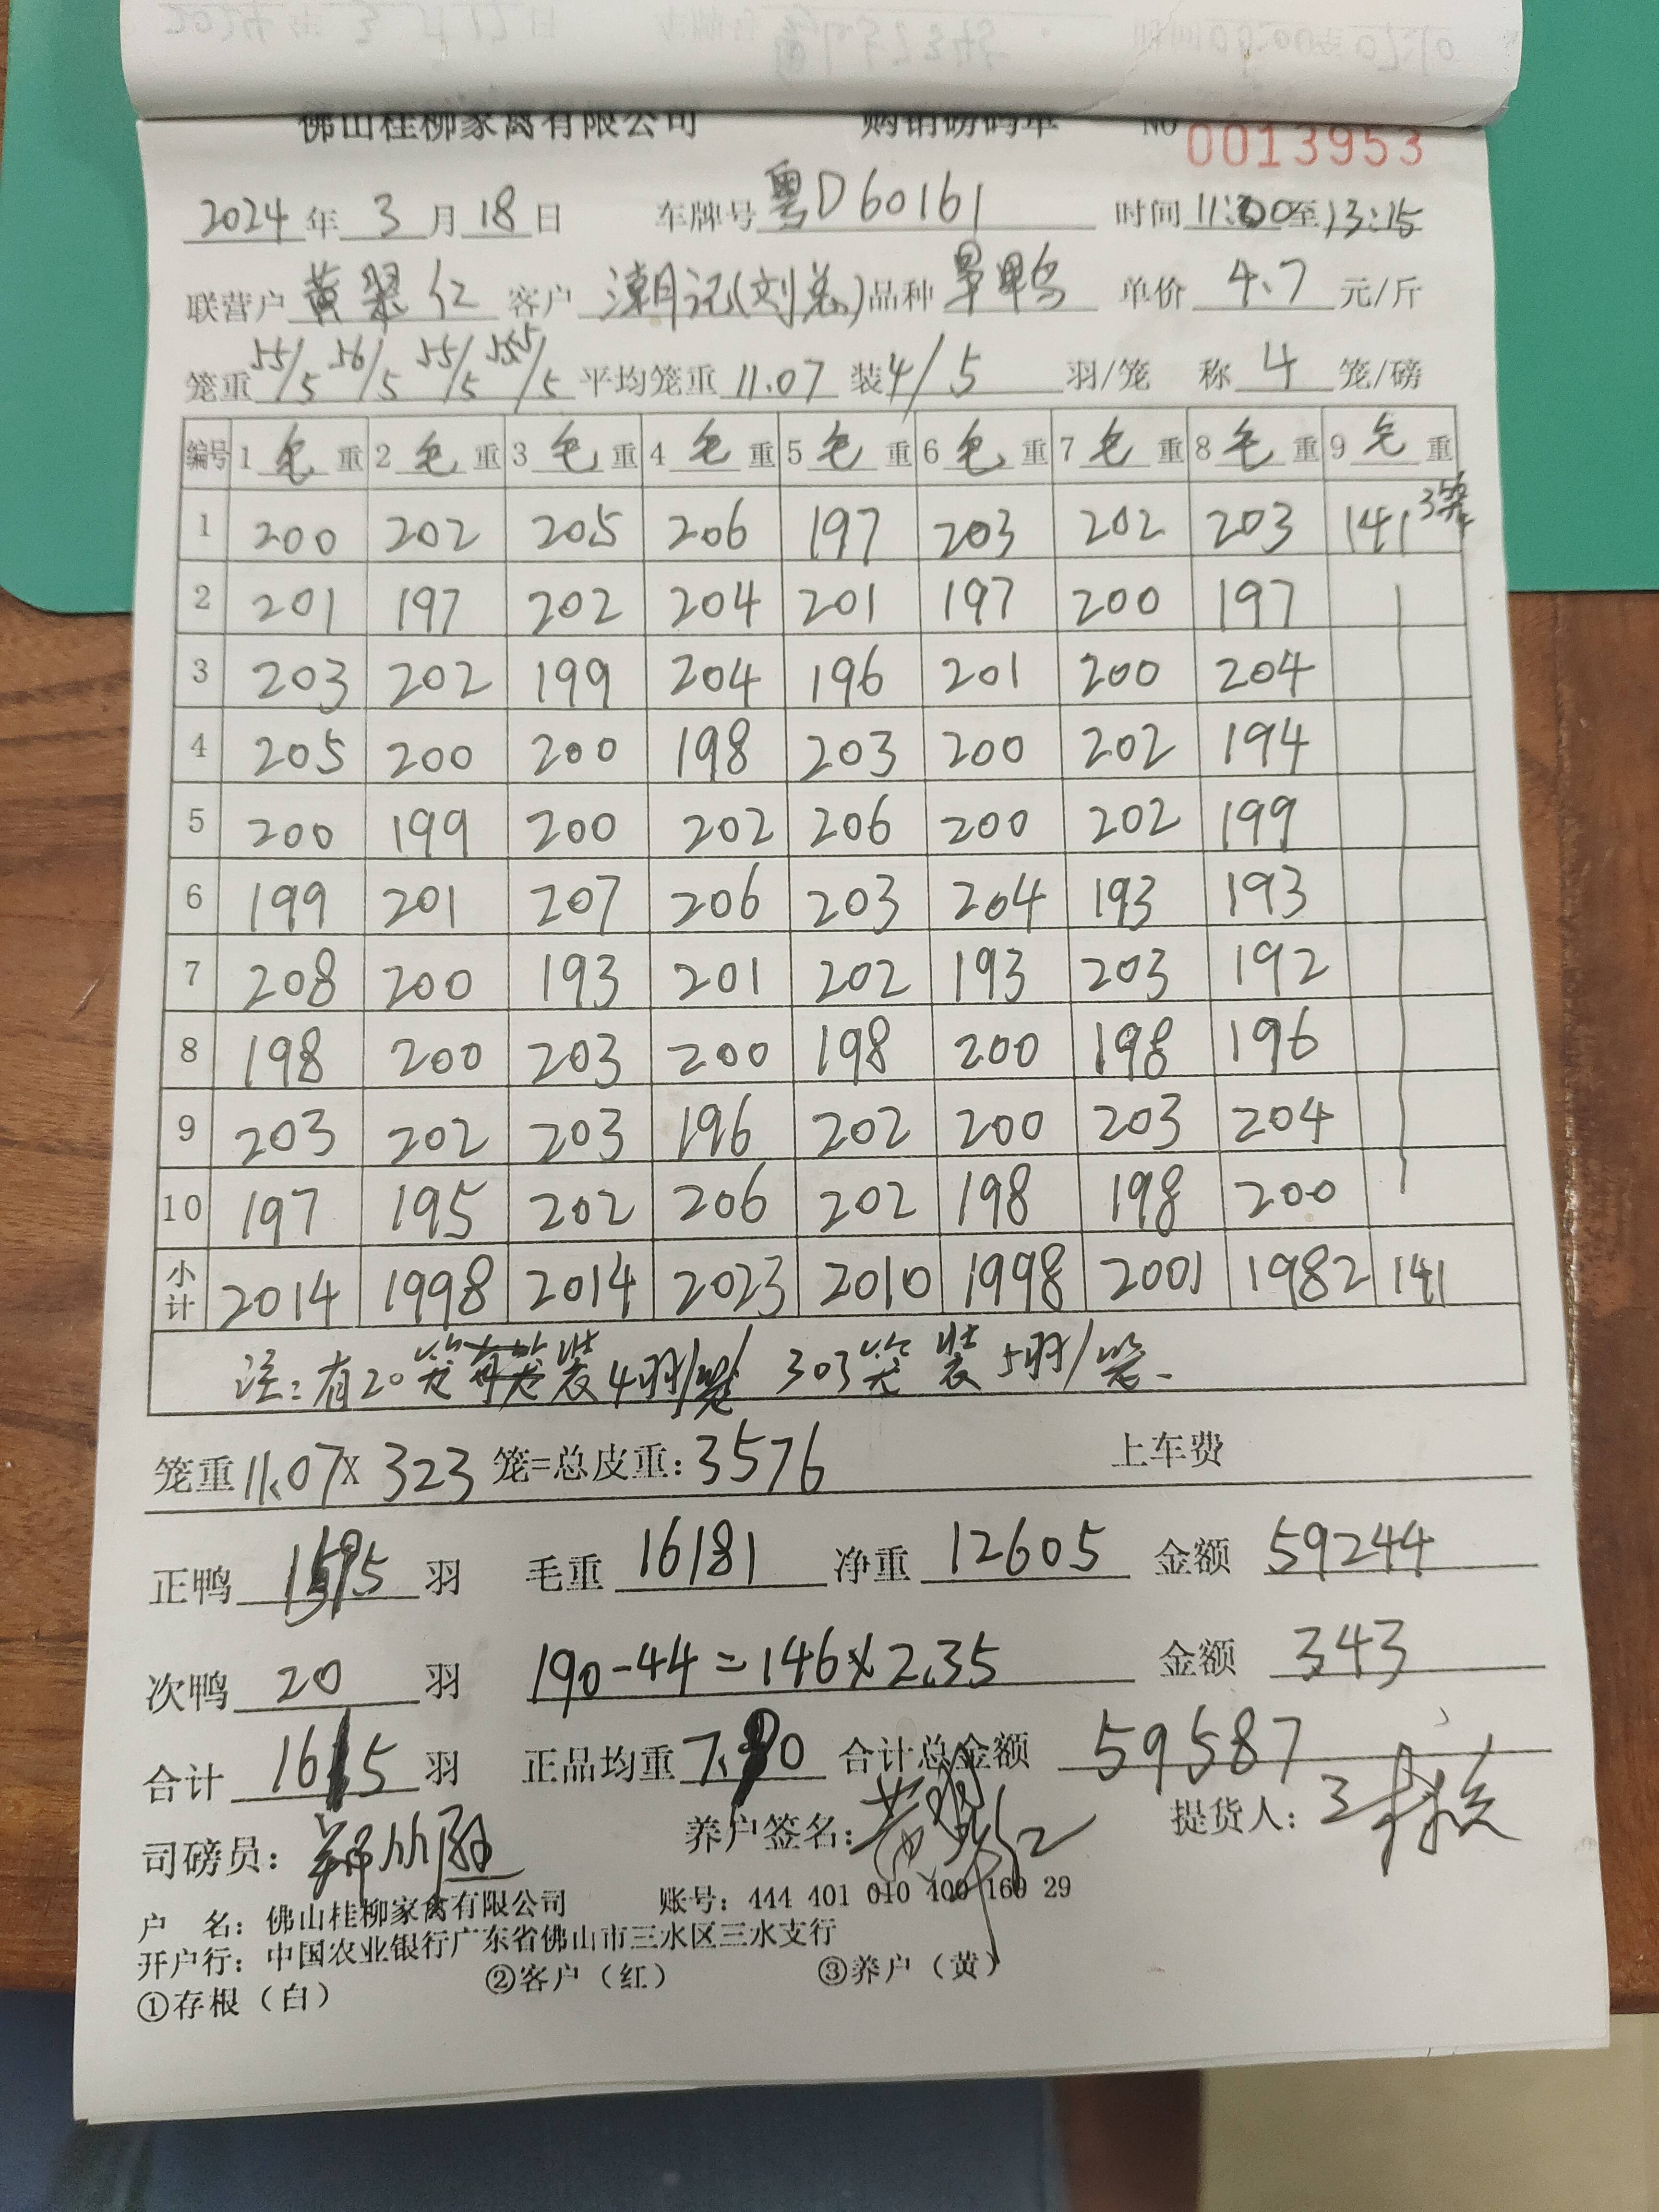 佛山桂柳家禽有限公司 购销磅码单 NO 0013953
2024年3月18日 车牌号 粤D60161 时间 11:00至13:15
联营户 黄翠仁 客户 潮记(刘总) 品种 旱鸭 单价 4.7 元/斤
笼重 55/5 56/5 55/5 55.5/5 平均笼重 11.07 装 4/5 羽/笼 称 4 笼/磅
编号 1毛重 2毛重 3毛重 4毛重 5毛重 6毛重 7毛重 8毛重 9毛重
1 200 202 205 206 197 203 202 203 141 3笼
2 201 197 202 204 201 197 200 197
3 203 202 199 204 196 201 200 204
4 205 200 200 198 203 200 202 194
5 200 199 200 202 206 200 202 199
6 199 201 207 206 203 204 193 193
7 208 200 193 201 202 193 203 192
8 198 200 203 200 198 200 198 196
9 203 202 203 196 202 200 203 204
10 197 195 202 206 202 198 198 200
小计 2014 1998 2014 2023 2010 1998 2001 1982 141
注:有20笼装4羽/笼 303笼装5羽/笼.
笼重 11.07 X 323 笼=总皮重:3576 上车费
正鸭 1595 羽 毛重 16181 净重 12605 金额 59244
次鸭 20 羽 190-44=146×2.35 金额 343
合计 1615 羽 正品均重 7.90 合计总金额 59587
司磅员: 养户签名: 提货人:
户 名:佛山桂柳家禽有限公司 账号:444 401 010 400 160 29
开户行:中国农业银行广东省佛山市三水区三水支行
①存根(白) ②客户(红) ③养户(黄)